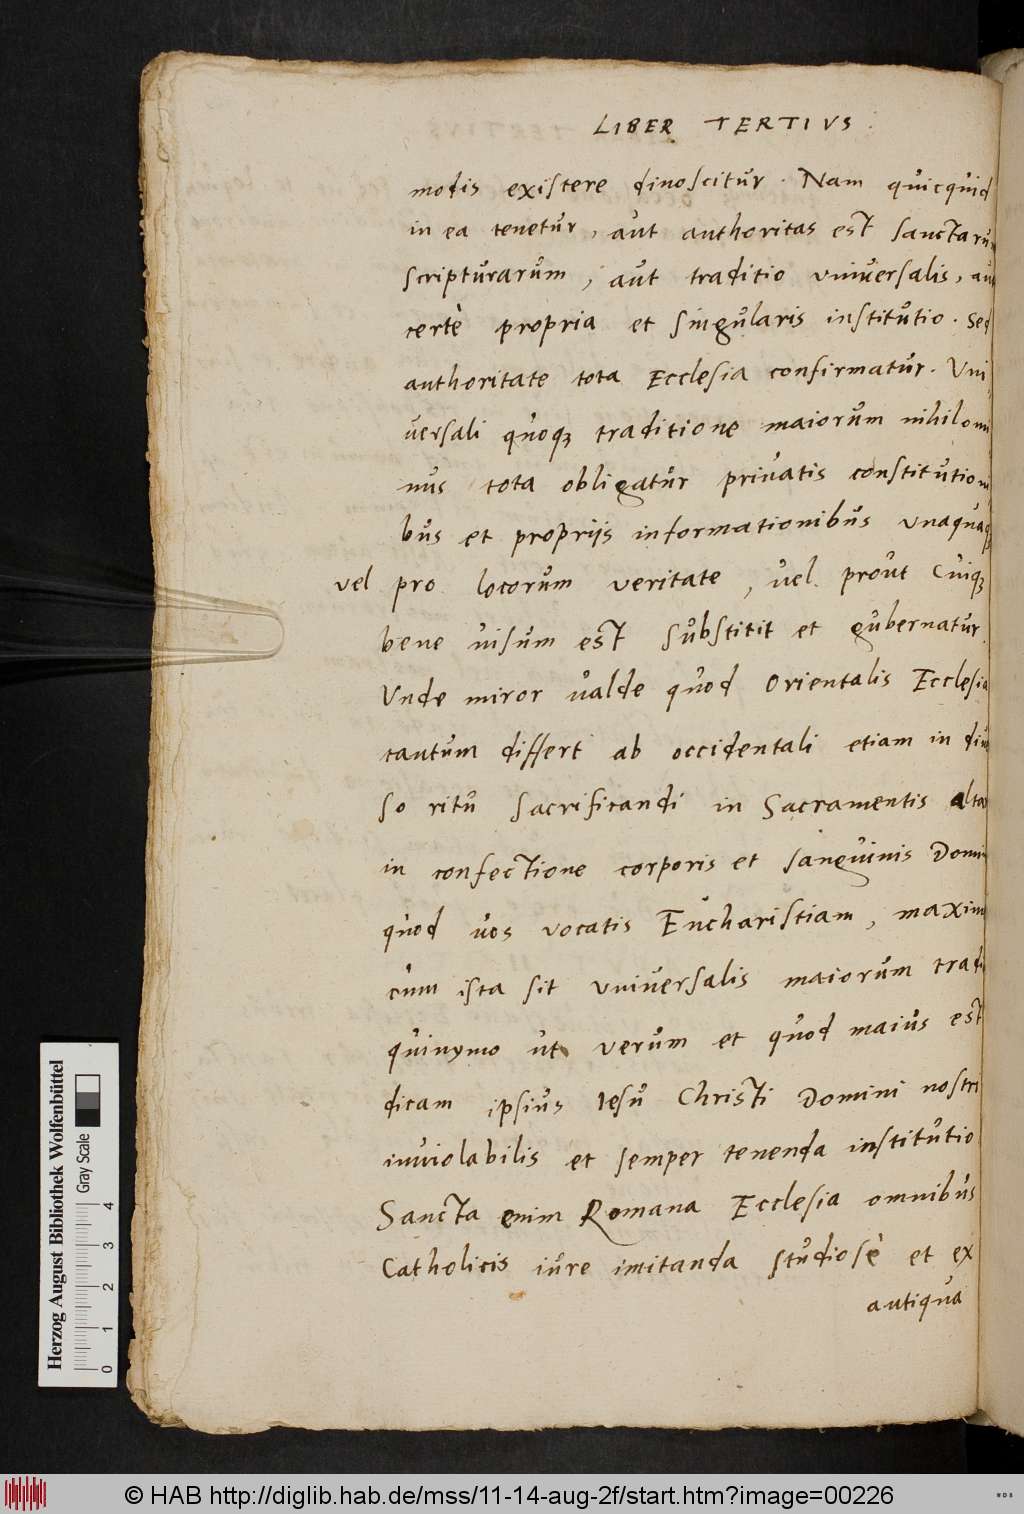 LIBER TERTIVS.
modis existere dinoscitur. Nam quicquid
in ea tenetur, aut authoritas est sanctarum
scripturarum, aut traditio vniuersalis, aut
certè propria et singularis institutio. Sed
authoritate tota Ecclesia confirmatur. Vni,
versali quoq; traditione maiorum nihilomi
nus tota obligatur privatis constitutioni
bus et propriis informationibus vnaquaq
vel pro locorum veritate, vel prout cuiq;
bene uisum est substitit et gubernatur.
Vnde miror ualde quod Orientalis Ecclesia
tantum differt ab occidentali etiam in diu
so ritu sacrificandi in Sacramentis alta
in confectione corporis et sanguinis Domi
quod uos vocatis Eucharistiam, maxim
cum ista sit vniuersalis maiorum tradi
quinymo ut verum et quod maius est
dicam ipsius Iesu Christi Domini nostri
inuiolabilis et semper tenenda institutio
Sancta enim Romana Ecclesia omnibus
Catholicis iure imitanda studiosè et ex
antiqua
Herzog August Bibliothek Wolfenbüttel
Gray Scale
0 1 2 3 4
© HAB http://diglib.hab.de/mss/11-14-aug-2f/start.htm?image=00226